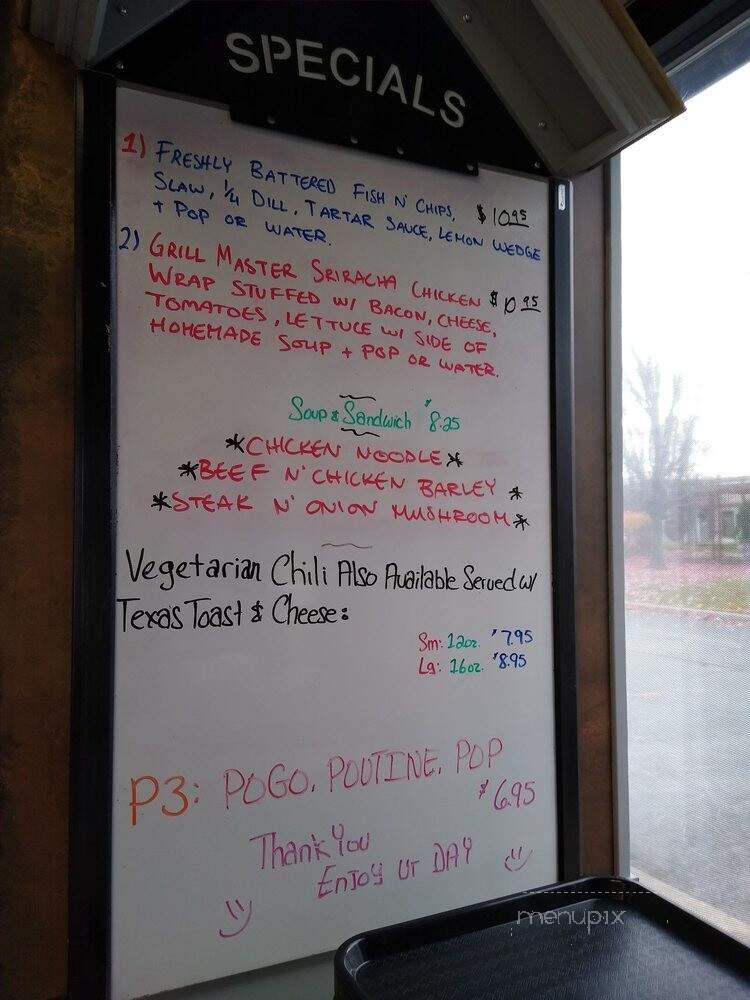 SPECIALS
1) FRESHLY BATTERED FISH N' CHIPS,
SLAW, 1/4 DILL, TARTAR SAUCE, LEMON WEDGE $10.95
+ POP OR WATER.
2) GRILL MASTER SRIRACHA CHICKEN $10.95
WRAP STUFFED W/ BACON, CHEESE,
TOMATOES, LETTUCE W/ SIDE OF
HOMEMADE SOUP + POP OR WATER.
Soup & Sandwich $8.25
*CHICKEN NOODLE*
*BEEF N' CHICKEN BARLEY *
*STEAK N' ONION MUSHROOM*
Vegetarian Chili Also Available Served w/
Texas Toast & Cheese:
Sm: 12oz. $7.95
Lg: 16oz. $8.95
P3: POGO, POUTINE, POP
$6.95
Thank You
Enjoy ur DAY
menupix